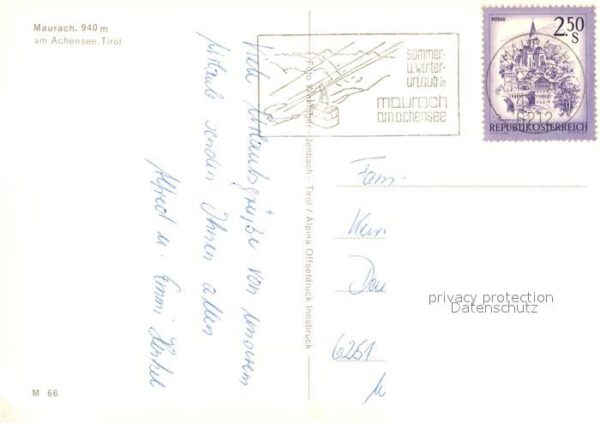 Maurach, 940 m
am Achensee, Tirol
Viele Urlaubsgrüße von unserem
Urlaub senden Ihnen allen
Alfred u. Emmi
M 66
Jenbach - Tirol / Alpina Offsetdruck Innsbruck
sommer-
u. winter-
urlaub in
maurach
am achensee
MURAU
2.50
S
6212
REPUBLIK ÖSTERREICH
Fam.
6251
privacy protection
Datenschutz